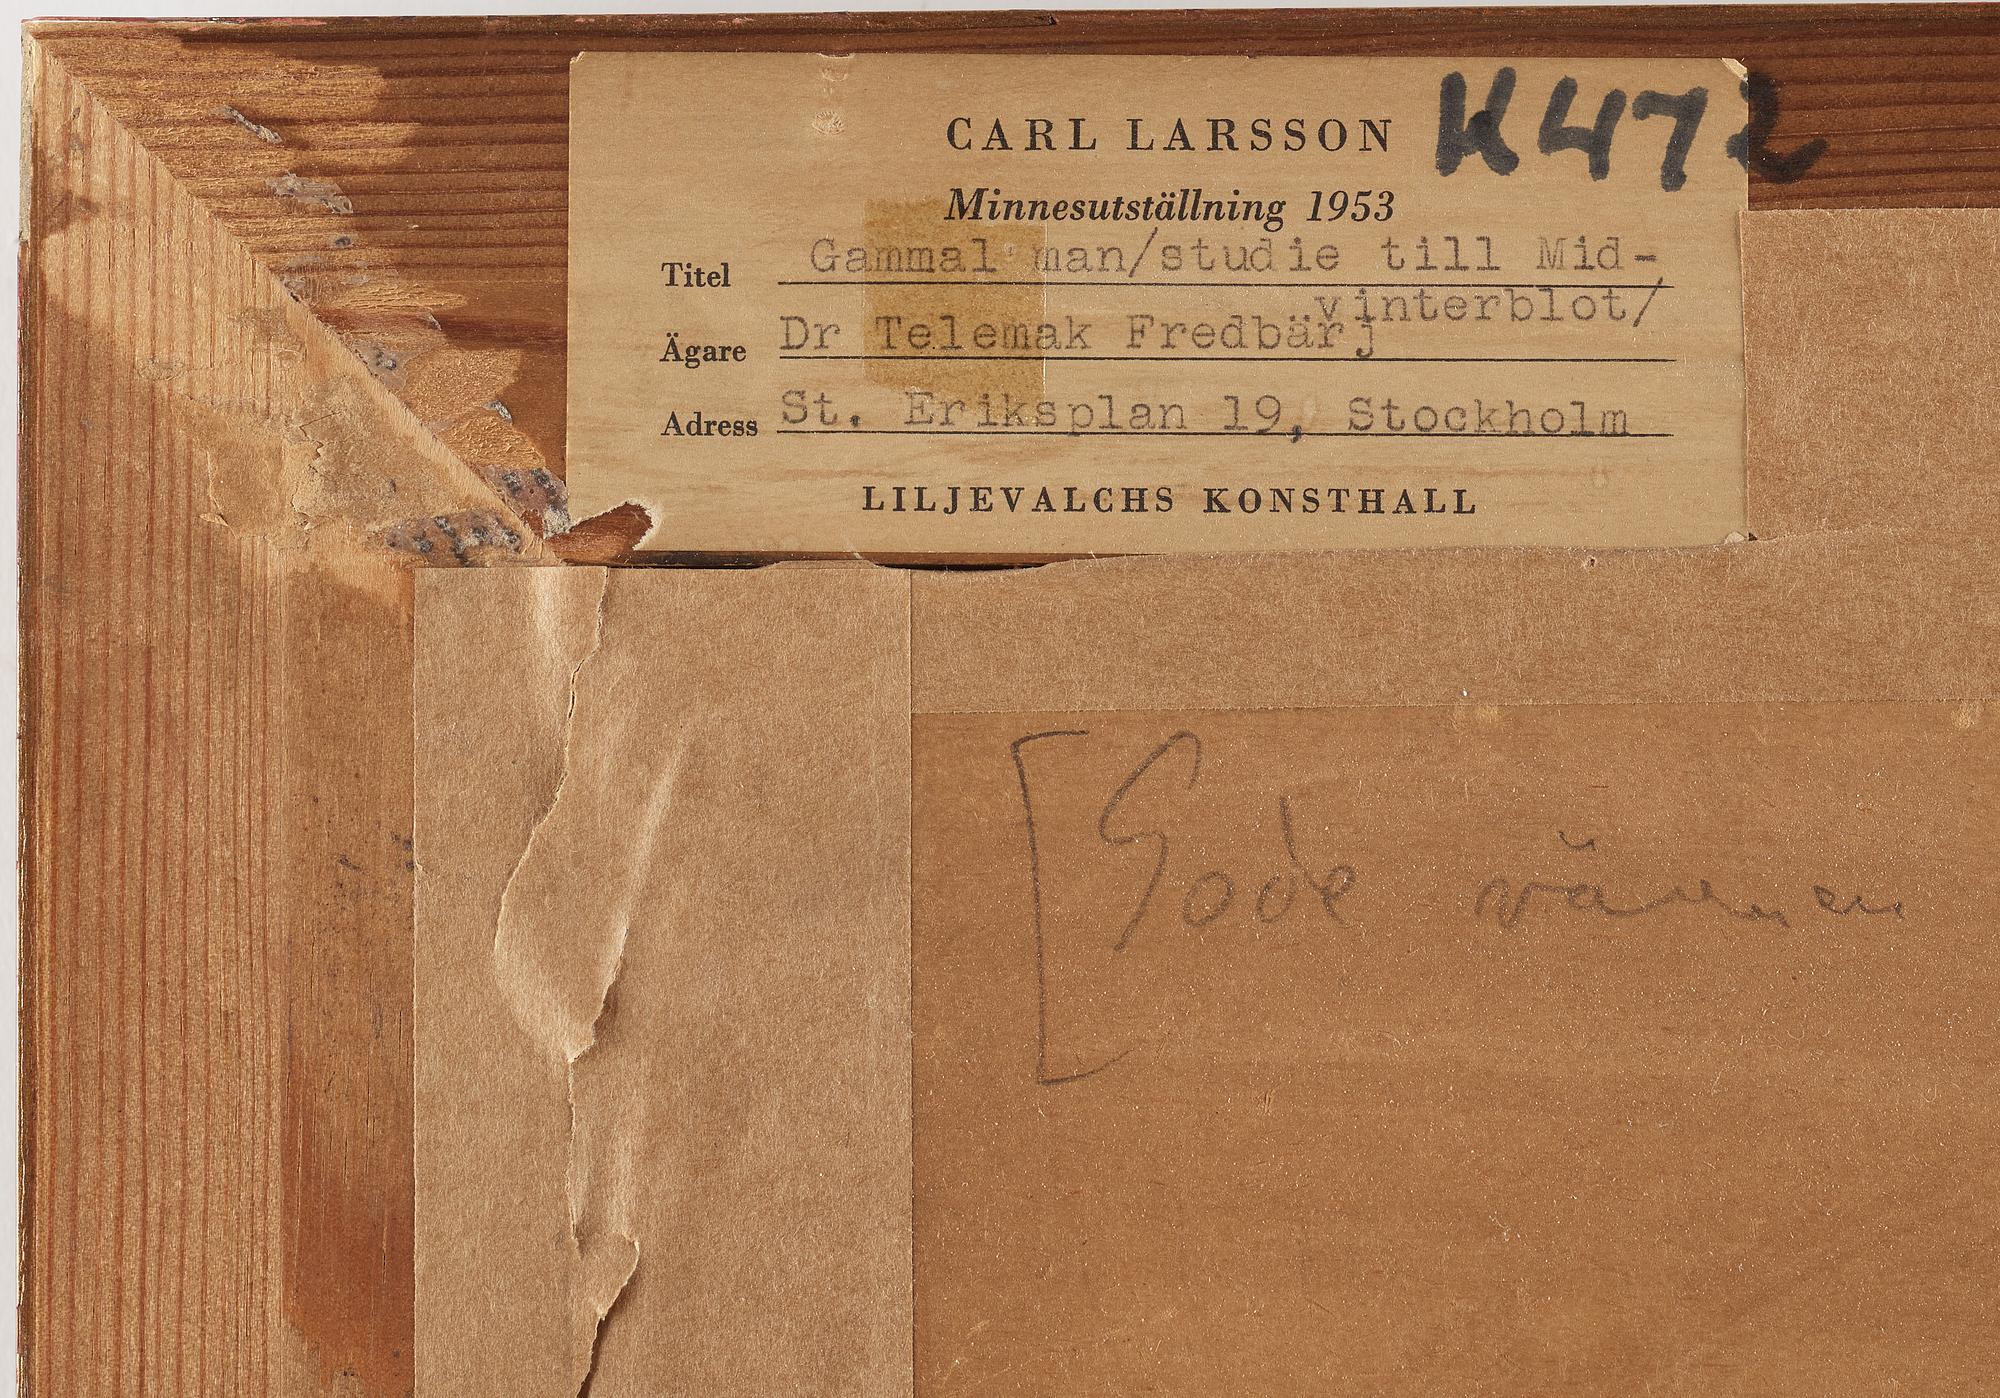 CARL LARSSON K472
Minnesutställning 1953
Titel Gammal man/studie till Mid-
vinterblot/
Ägare Dr Telemak Fredbärj
Adress St. Eriksplan 19, Stockholm
LILJEVALCHS KONSTHALL
[Gode vännen